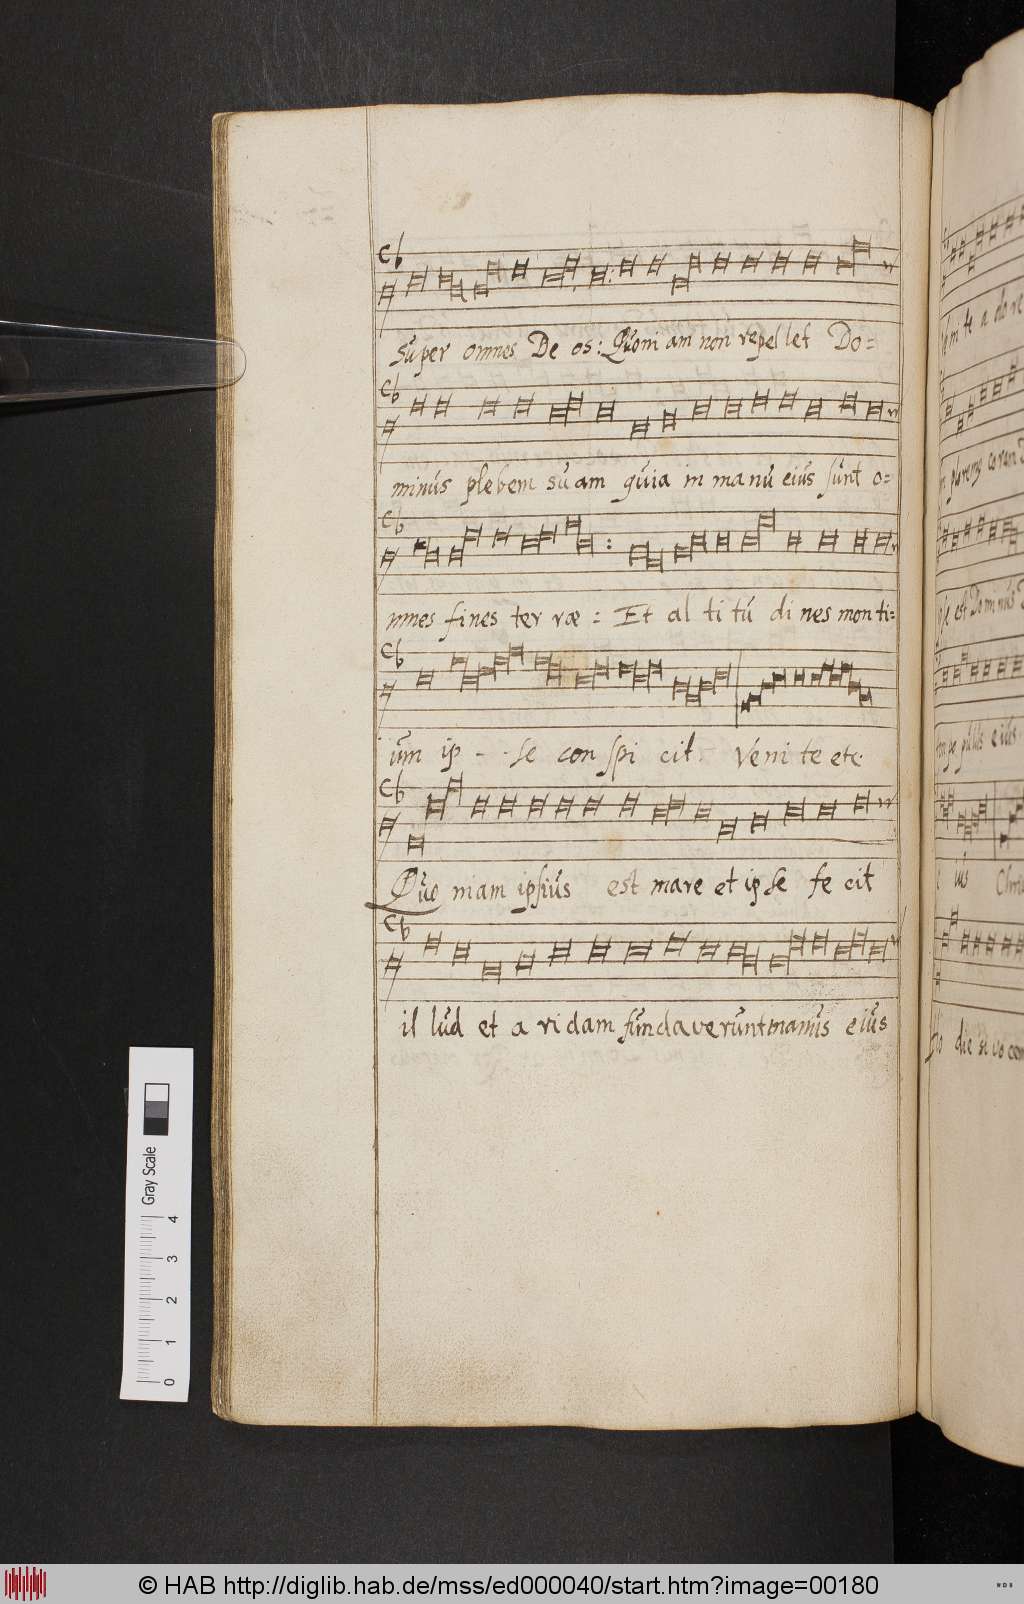 super omnes De os: Quom am non repel let Do=
minus plebem su am quia in ma nu eius sunt o=
mnes fi nes ter ræ: Et al ti tu di nes mon ti=
um ip - - se con spi cit. Ve ni te etc.
Quo niam ipsius est mare et ip se fe cit
il lud et a ri dam fundaverunt manus eius
Gray Scale
0 1 2 3 4
© HAB http://diglib.hab.de/mss/ed000040/start.htm?image=00180